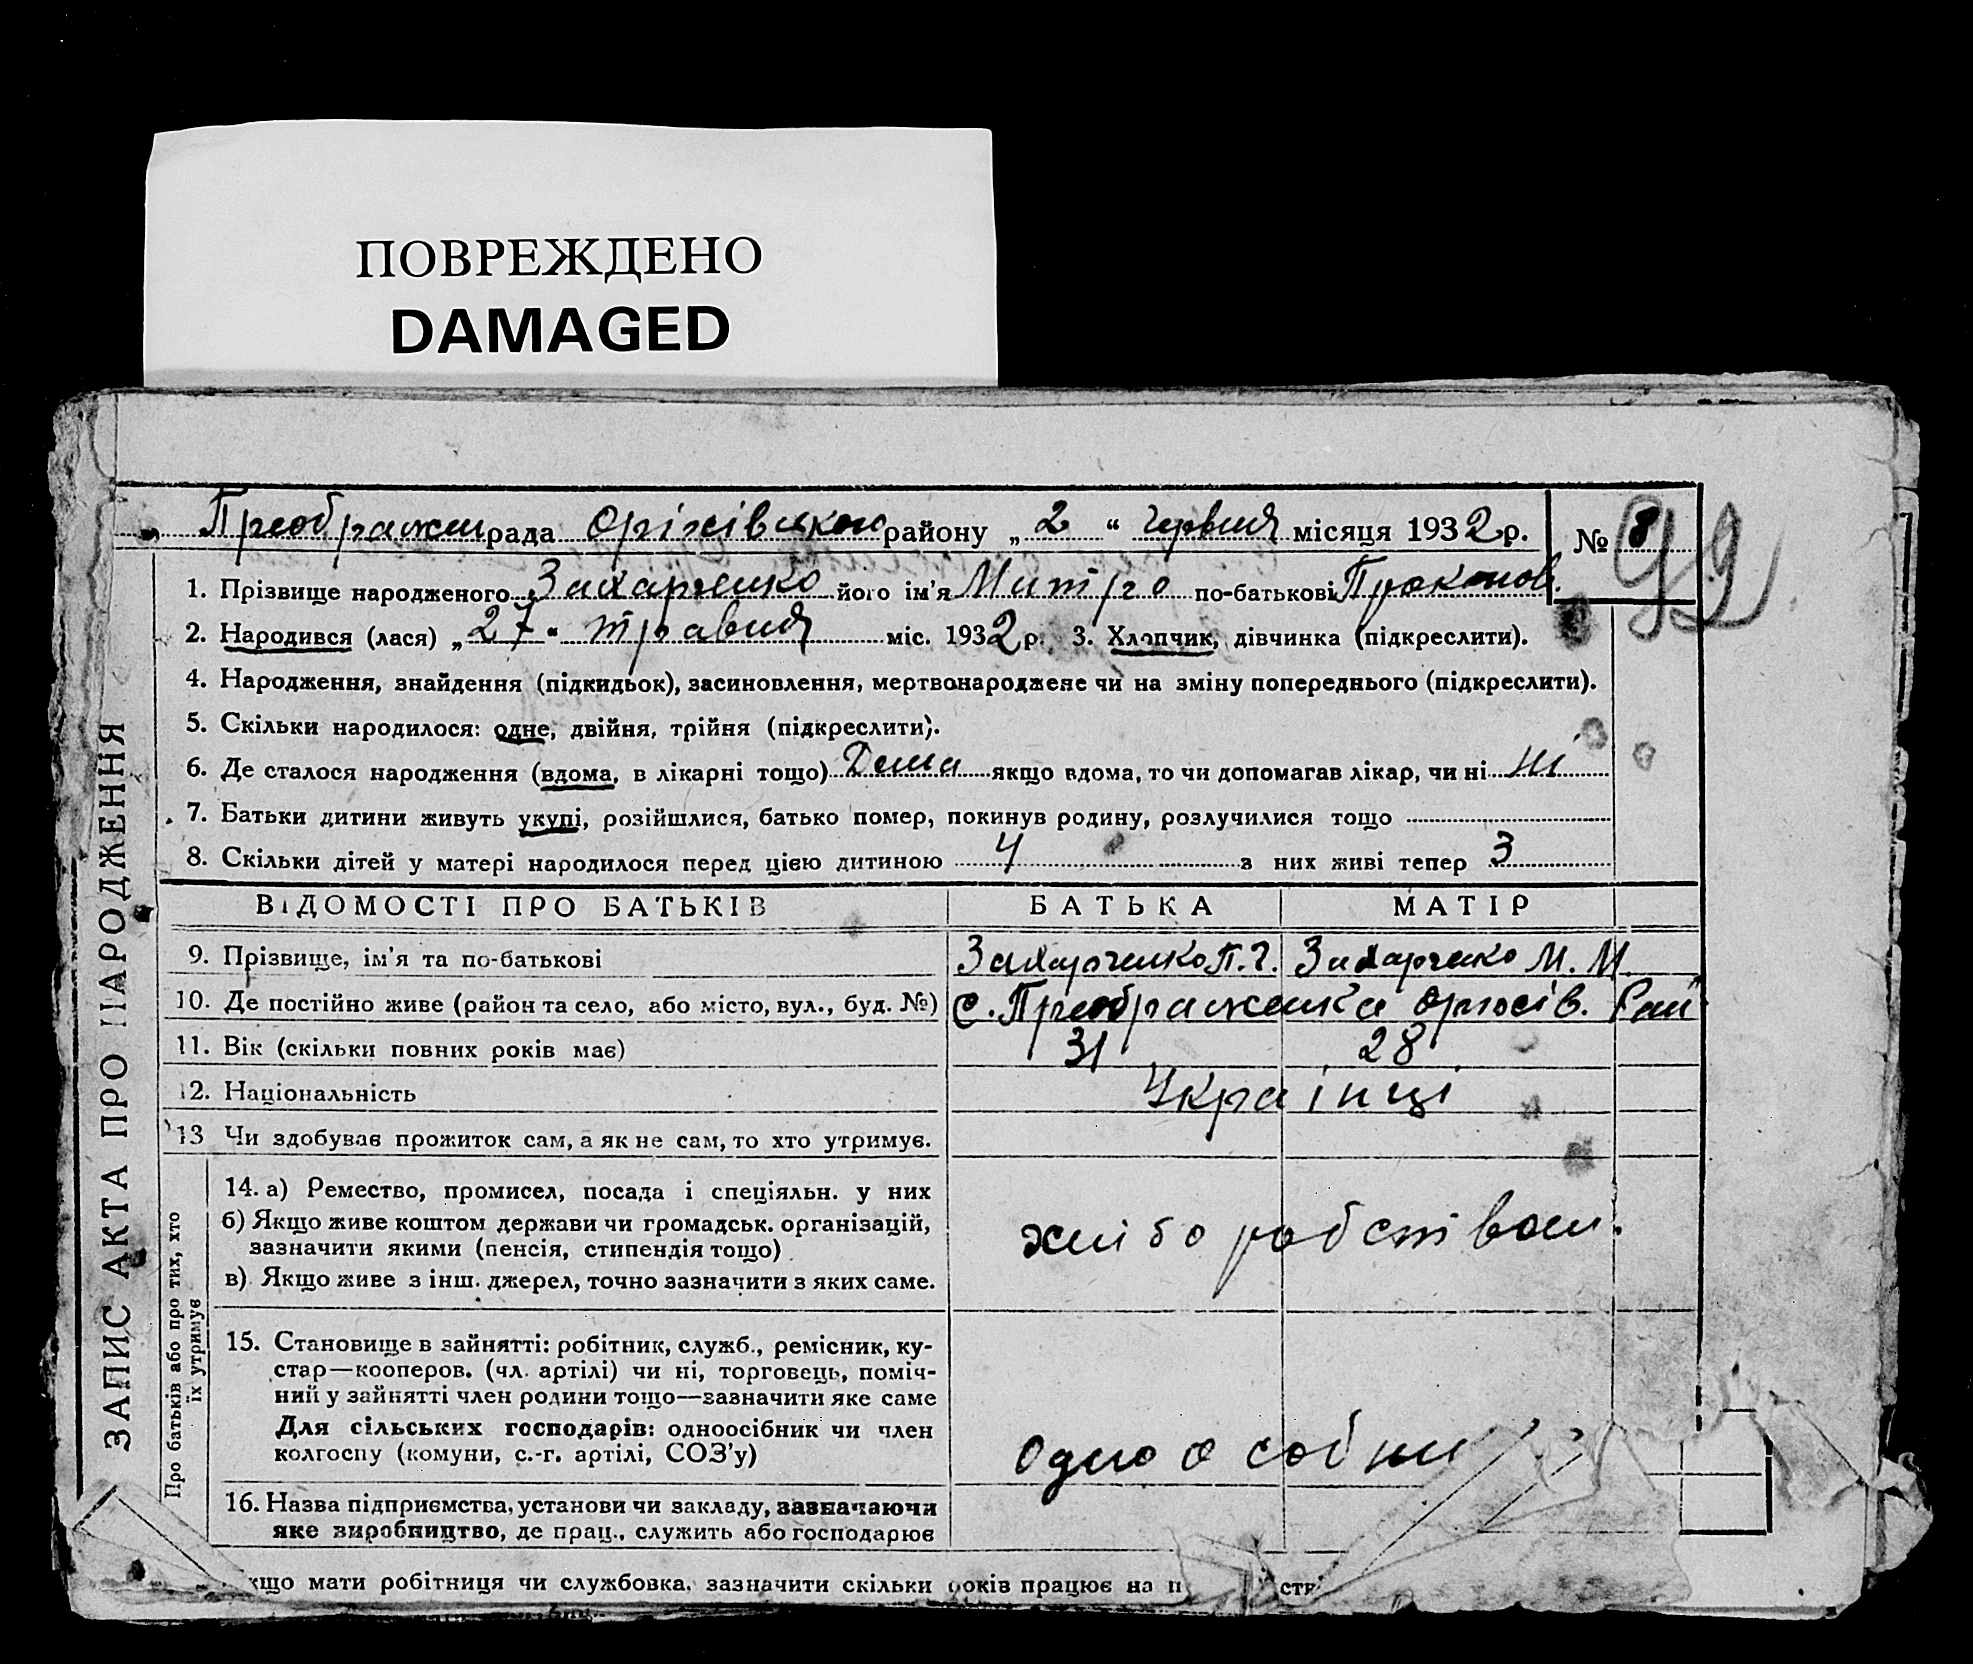 ПОВРЕЖДЕНО
DAMAGED
Преображен рада Оріхівського району „ 2 “ червня місяця 1932 р. № 8
92
1. Прізвище народженого Захарченко його ім'я Митро по-батькові Прокопов.
2. Народився (лася) „ 27 “ травня міс. 1932 р. 3. Хлопчик, дівчинка (підкреслити).
4. Народження, знайдення (підкидьок), засиновлення, мертвонароджене чи на зміну попереднього (підкреслити).
5. Скільки народилося: одне, двійня, трійня (підкреслити).
6. Де сталося народження (вдома, в лікарні тощо) Дома якщо вдома, то чи допомагав лікар, чи ні ні
7. Батьки дитини живуть укупі, розійшлися, батько помер, покинув родину, розлучилися тощо
8. Скільки дітей у матері народилося перед цією дитиною 4 з них живі тепер 3
ВІДОМОСТІ ПРО БАТЬКІВ БАТЬКА МАТІР
9. Прізвище, ім'я та по-батькові Захарченко П. Г. Захарченко М. М
10. Де постійно живе (район та село, або місто, вул., буд. №) с. Преображенка Оріхів. Рай
11. Вік (скільки повних років має) 31 28
12. Національність Українці
13 Чи здобував прожиток сам, а як не сам, то хто утримує.
14. а) Ремество, промисел, посада і спеціяльн. у них
б) Якщо живе коштом держави чи громадськ. організацій,
зазначити якими (пенсія, стипендія тощо)
в) Якщо живе з інш. джерел, точно зазначити з яких саме.
хліборобством.
15. Становище в зайнятті: робітник, служб., ремісник, ку-
стар—кооперов. (чл. артілі) чи ні, торговець, поміч-
ний у зайнятті член родини тощо—зазначити яке саме
Для сільських господарів: одноосібник чи член
колгоспу (комуни, с.-г. артілі, СОЗ'у)
одноособни
16. Назва підприємства, установи чи закладу, зазначаючи
яке виробництво, де прац., служить або господарює
кщо мати робітниця чи службовка, зазначити скільки років працює на п
ЗАПИС АКТА ПРО НАРОДЖЕННЯ
Про батьків або про тих, хто
їх утримує